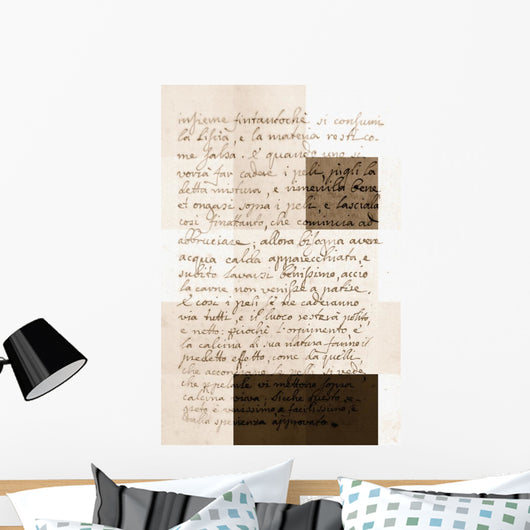 insieme fintantoche si consumi
la liscia, e la materia resti co-
me salsa. E quando uno si
voria far cadere i peli, pigli la
detta mistura, e rimenila bene
et ongasi sopra i peli, e lasciala
cosi finattanto, che comincia ad
abbruciare; allora bisogna avere
acqua calda apparecchiata, e
subito lavarsi benissimo, acciò
la carne non venisse a patire.
E cosi i peli se ne caderanno
via tutti, e il luoco resterà polito,
e netto: perciochè l'orpimento e
la calcina di sua natura fanno il
predetto effetto, come da quelli,
che acconciano le pelli si vede,
che per pelarle vi mettono sopra
calcina viva; sicche questo se-
greto è verissimo, e facilissimo, e
dalla sperienza approvato.